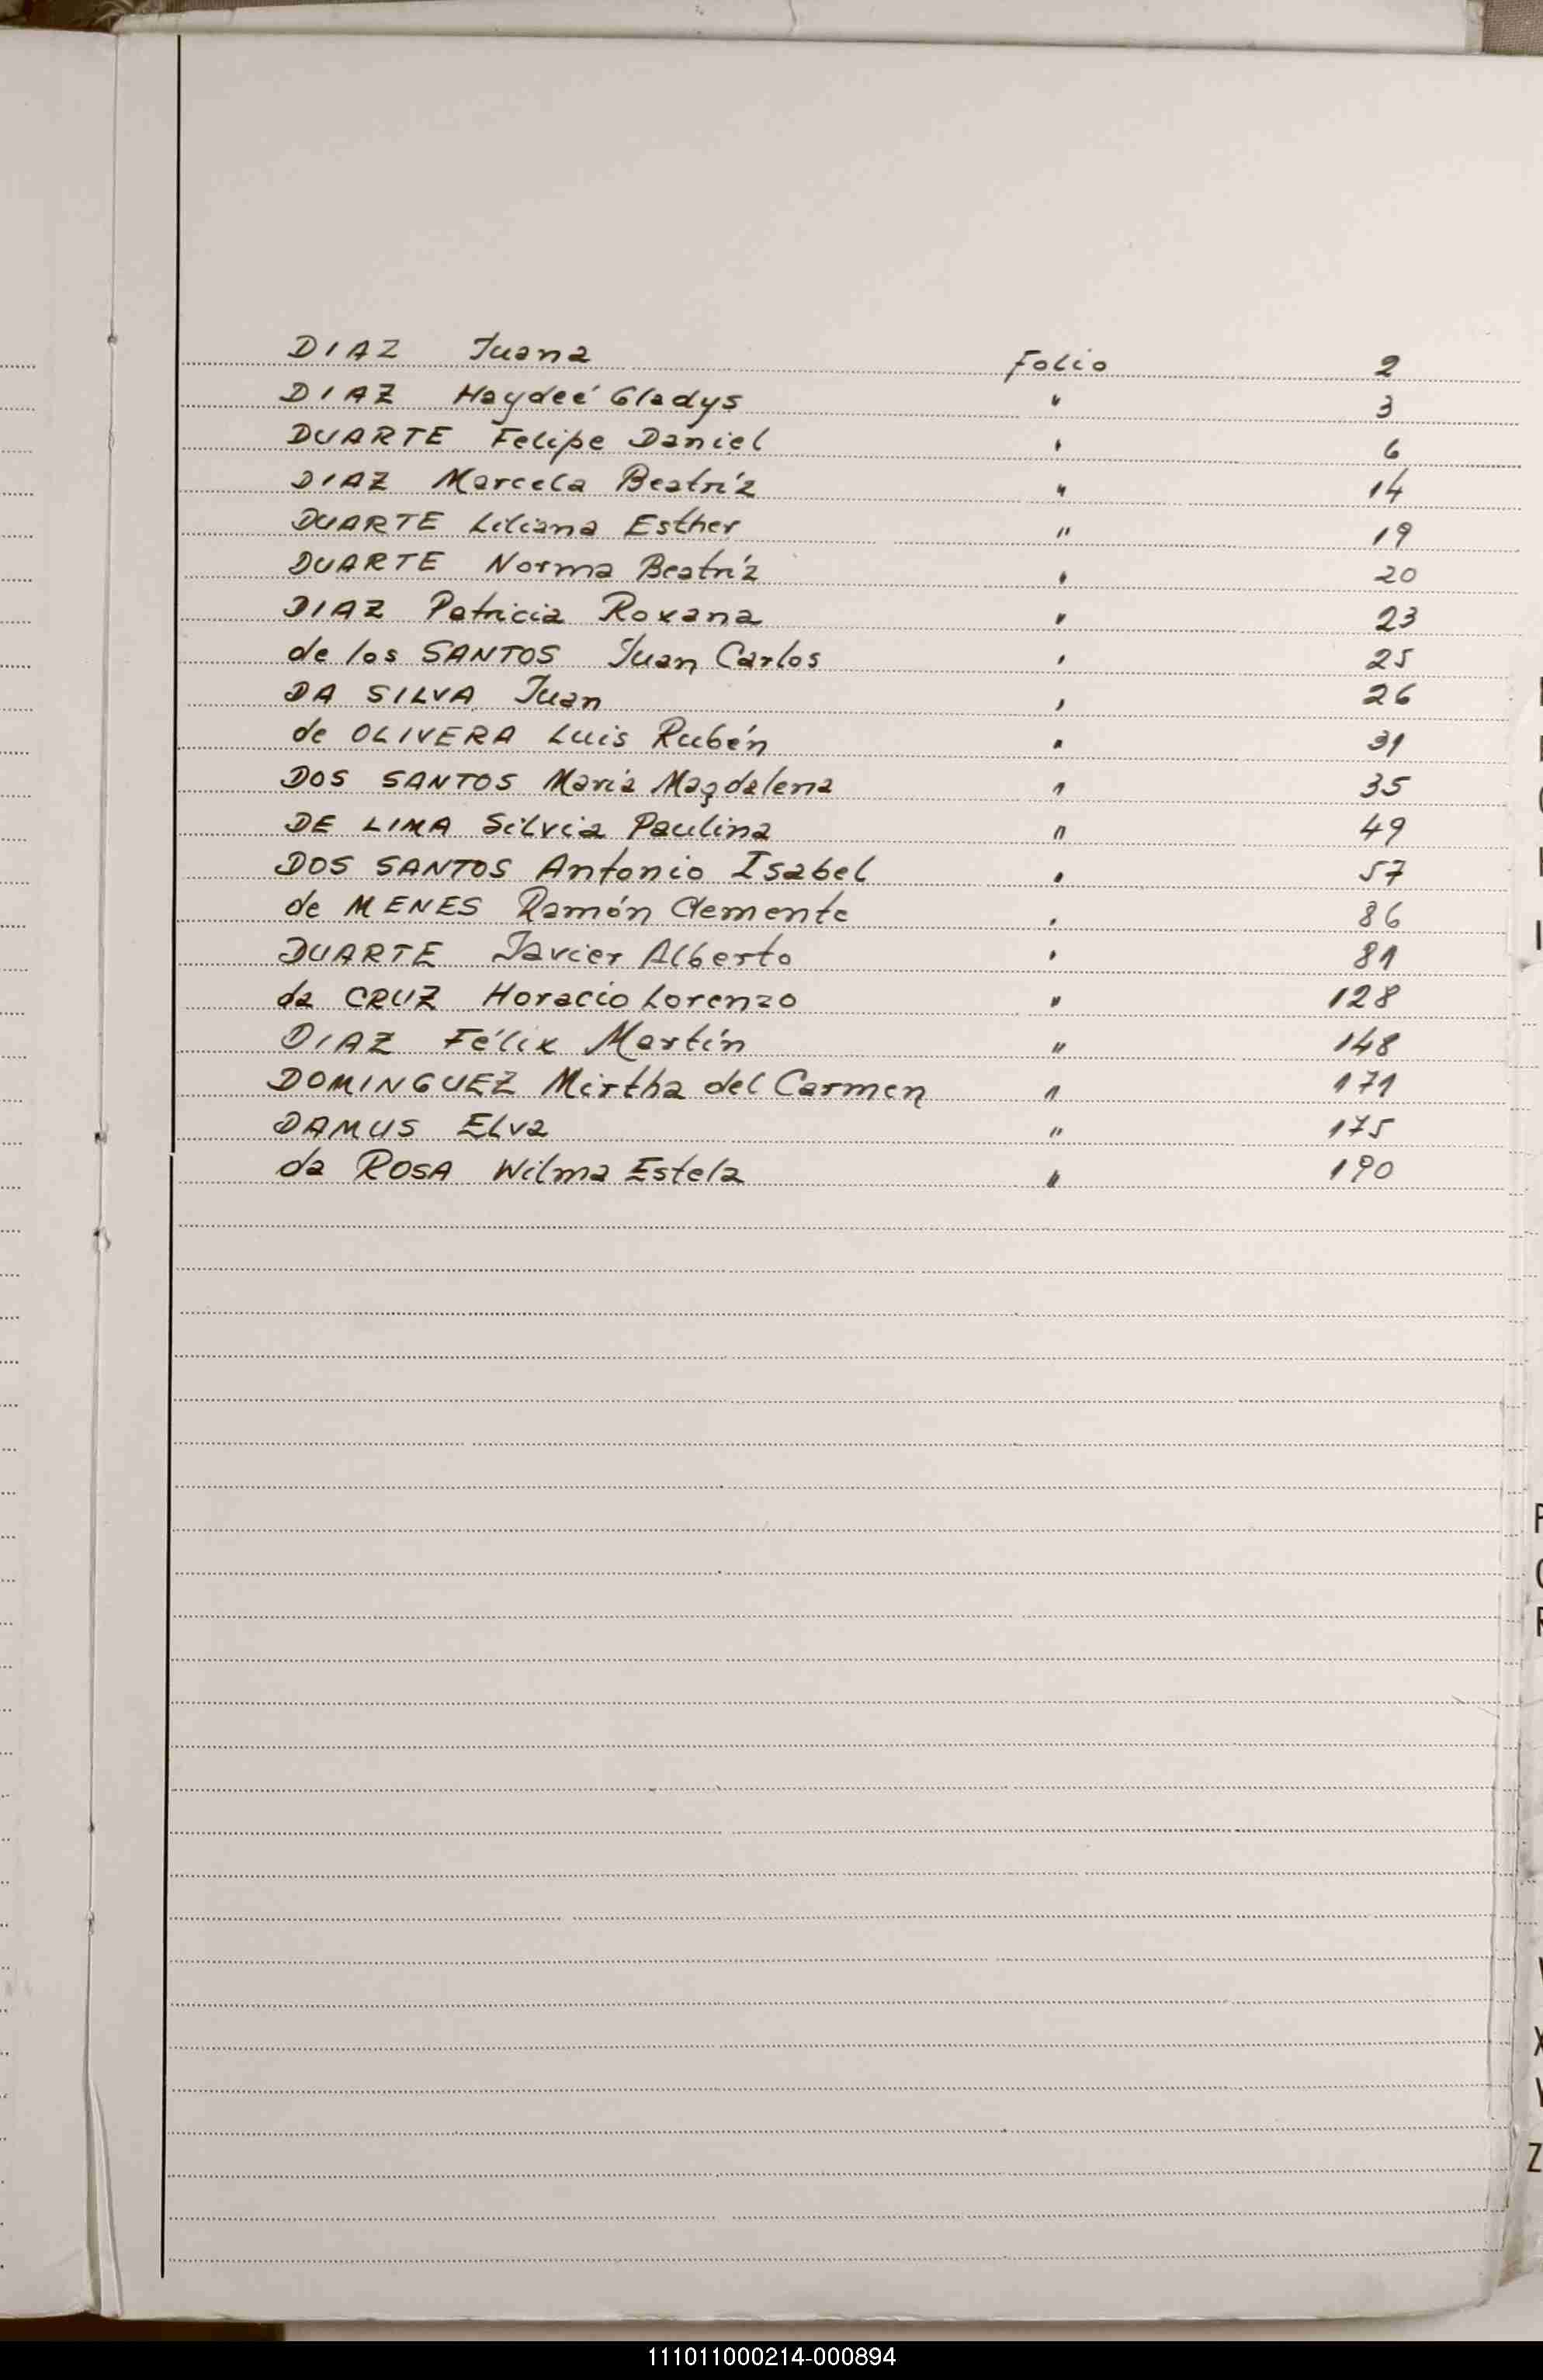 DIAZ Juana Folio 2
DIAZ Haydeé Gladys " 3
DUARTE Felipe Daniel " 6
DIAZ Marcela Beatríz " 14
DUARTE Liliana Esther " 19
DUARTE Norma Beatríz " 20
DIAZ Patricia Roxana " 23
de los SANTOS Juan Carlos " 25
DA SILVA Juan " 26
de OLIVERA Luis Rubén " 31
DOS SANTOS María Magdalena " 35
DE LIMA Silvia Paulina " 49
DOS SANTOS Antonio Isabel " 57
de MENES Ramón Clemente " 86
DUARTE Javier Alberto " 81
da CRUZ Horacio Lorenzo " 128
DIAZ Félix Martín " 148
DOMINGUEZ Mirtha del Carmen " 171
DAMUS Elva " 175
da ROSA Wilma Estela " 190
X
Z
111011000214-000894